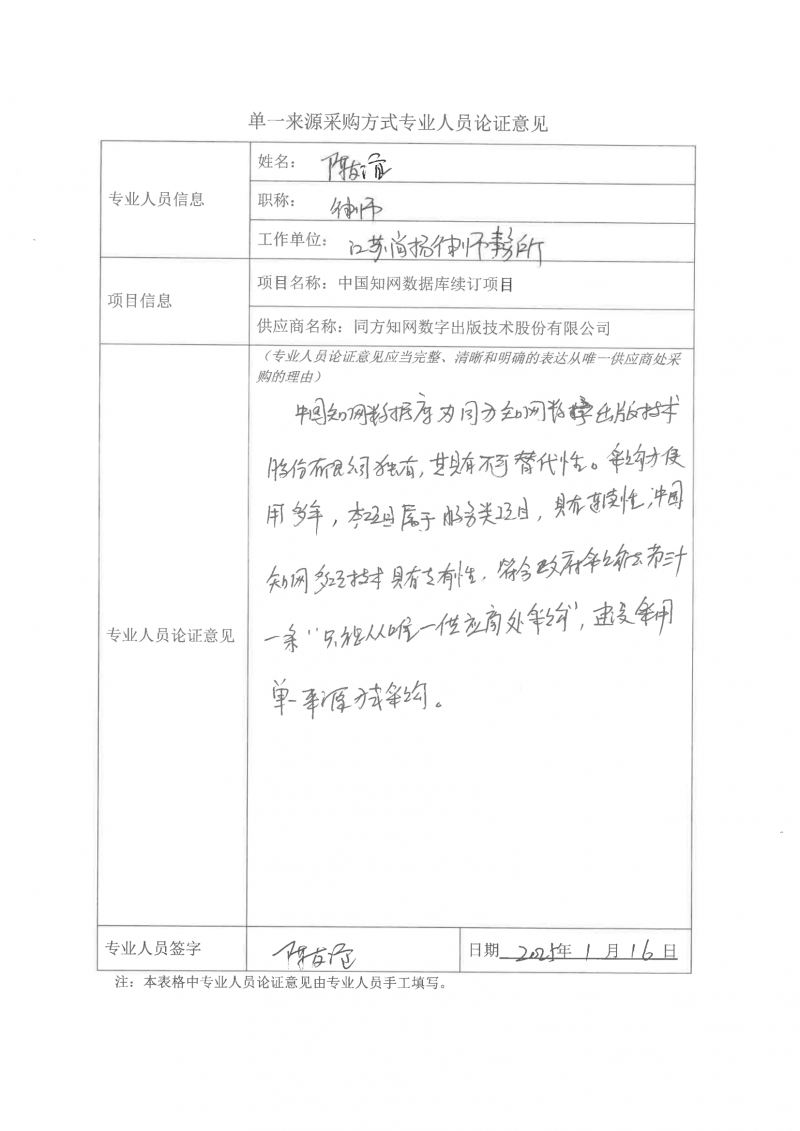 单一来源采购方式专业人员论证意见
专业人员信息
姓名：陈友谊
职称：律师
工作单位：江苏尚扬律师事务所
项目信息
项目名称：中国知网数据库续订项目
供应商名称：同方知网数字出版技术股份有限公司
专业人员论证意见
（专业人员论证意见应当完整、清晰和明确的表达从唯一供应商处采
购的理由）
中国知网数据库为同方知网数字出版技术
股份有限公司独有，其具有不可替代性。采购方使
用多年，本项目属于服务类项目，具有连续性，中国
知网多项技术具有专有性，符合政府采购法第三十
一条“只能从唯一供应商处采购”，建议采用
单一来源方式采购。
专业人员签字
陈友谊
日期 2025年 1 月 16 日
注：本表格中专业人员论证意见由专业人员手工填写。